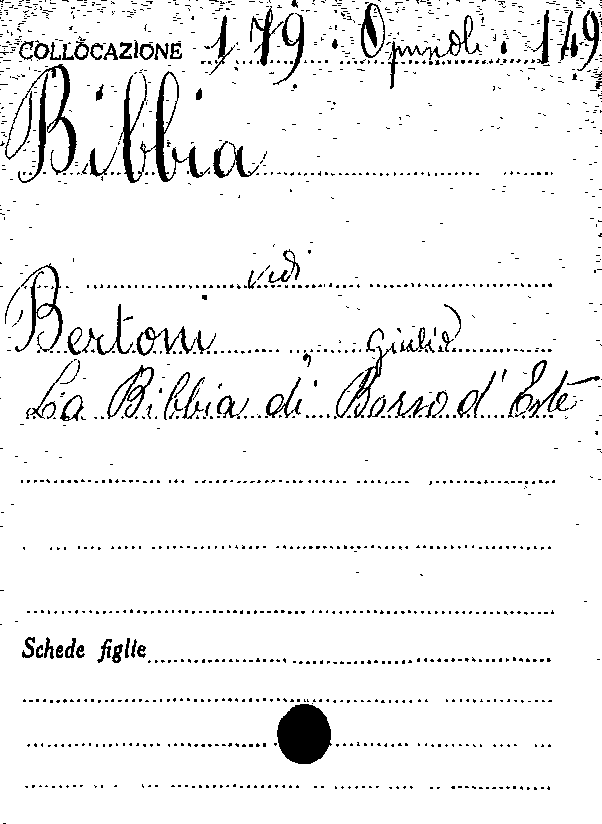 COLLOCAZIONE 179. Opuscoli. 149
Bibbia
vedi
Bertoni Giulio
La Bibbia di Borso d'Este
Schede figlie